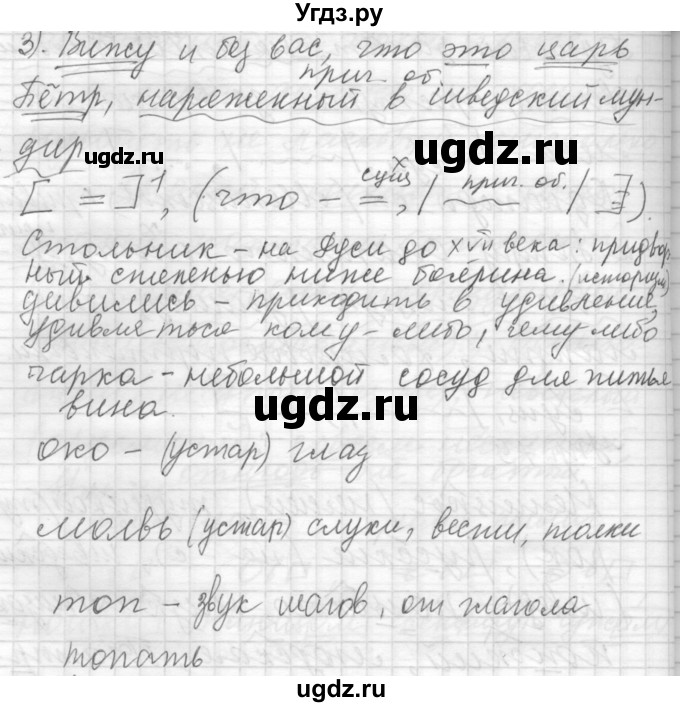 Угдз.ру
3). Вижу и без вас, что это царь
прич. об.
Пётр, наряженный в шведский мун-
дир
ugdz.ru ugdz.ru
сущ х
[ = ]¹, (что – =, | прич. об. | ).
Стольник – на Руси до XVII века: придвор
ный степенью ниже боярина. (историзм)
дивились – приходить в удивление,
удивляться кому-либо, чему либо
чарка – небольшой сосуд для питья
вина.
ugdz.ru ugdz.ru
око – (устар) глаз
молвь (устар) слухи, вести, толки
топ – звук шагов, от глагола
топать
ugdz.ru ugdz.ru